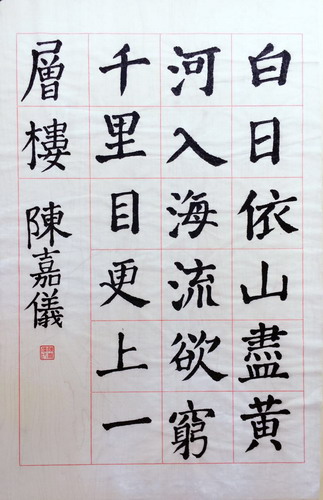 白日依山盡黃
河入海流欲窮
千里目更上一
層樓 陳嘉儀